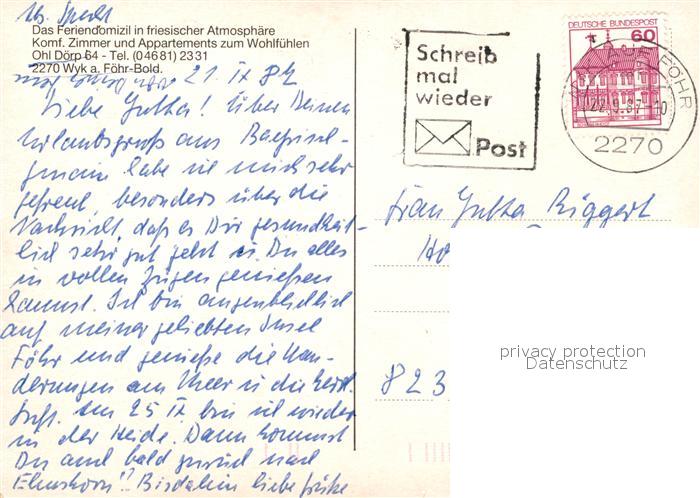 Abs. Specht
Das Feriendomizil in friesischer Atmosphäre
Komf. Zimmer und Appartements zum Wohlfühlen
Ohl Dörp 64 - Tel. (0 46 81) 23 31
2270 Wyk a. Föhr-Bold.
21. IX 87
Liebe Jutta! Über Deinen
Urlaubsgruß aus
habe ich mich sehr
gefreut, besonders über die
Nachricht, daß es Dir gesundheit-
lich sehr gut geht u. Du alles
in vollen Zügen genießen
kannst. Ich bin augenblicklich
auf meiner geliebten Insel
Föhr und genieße die Wan-
derungen am Meer u die herrl.
Luft. Am 25 IX bin ich wieder
in der Heide. Dann kommst
Du auch bald zurück nach
Elmshorn!! Bis dahin liebe Grüße
Schreib
mal
wieder
Post
DEUTSCHE BUNDESPOST
60
FÖHR
22.9.87-10
2270
Frau Jutta Riggert
823
privacy protection
Datenschutz